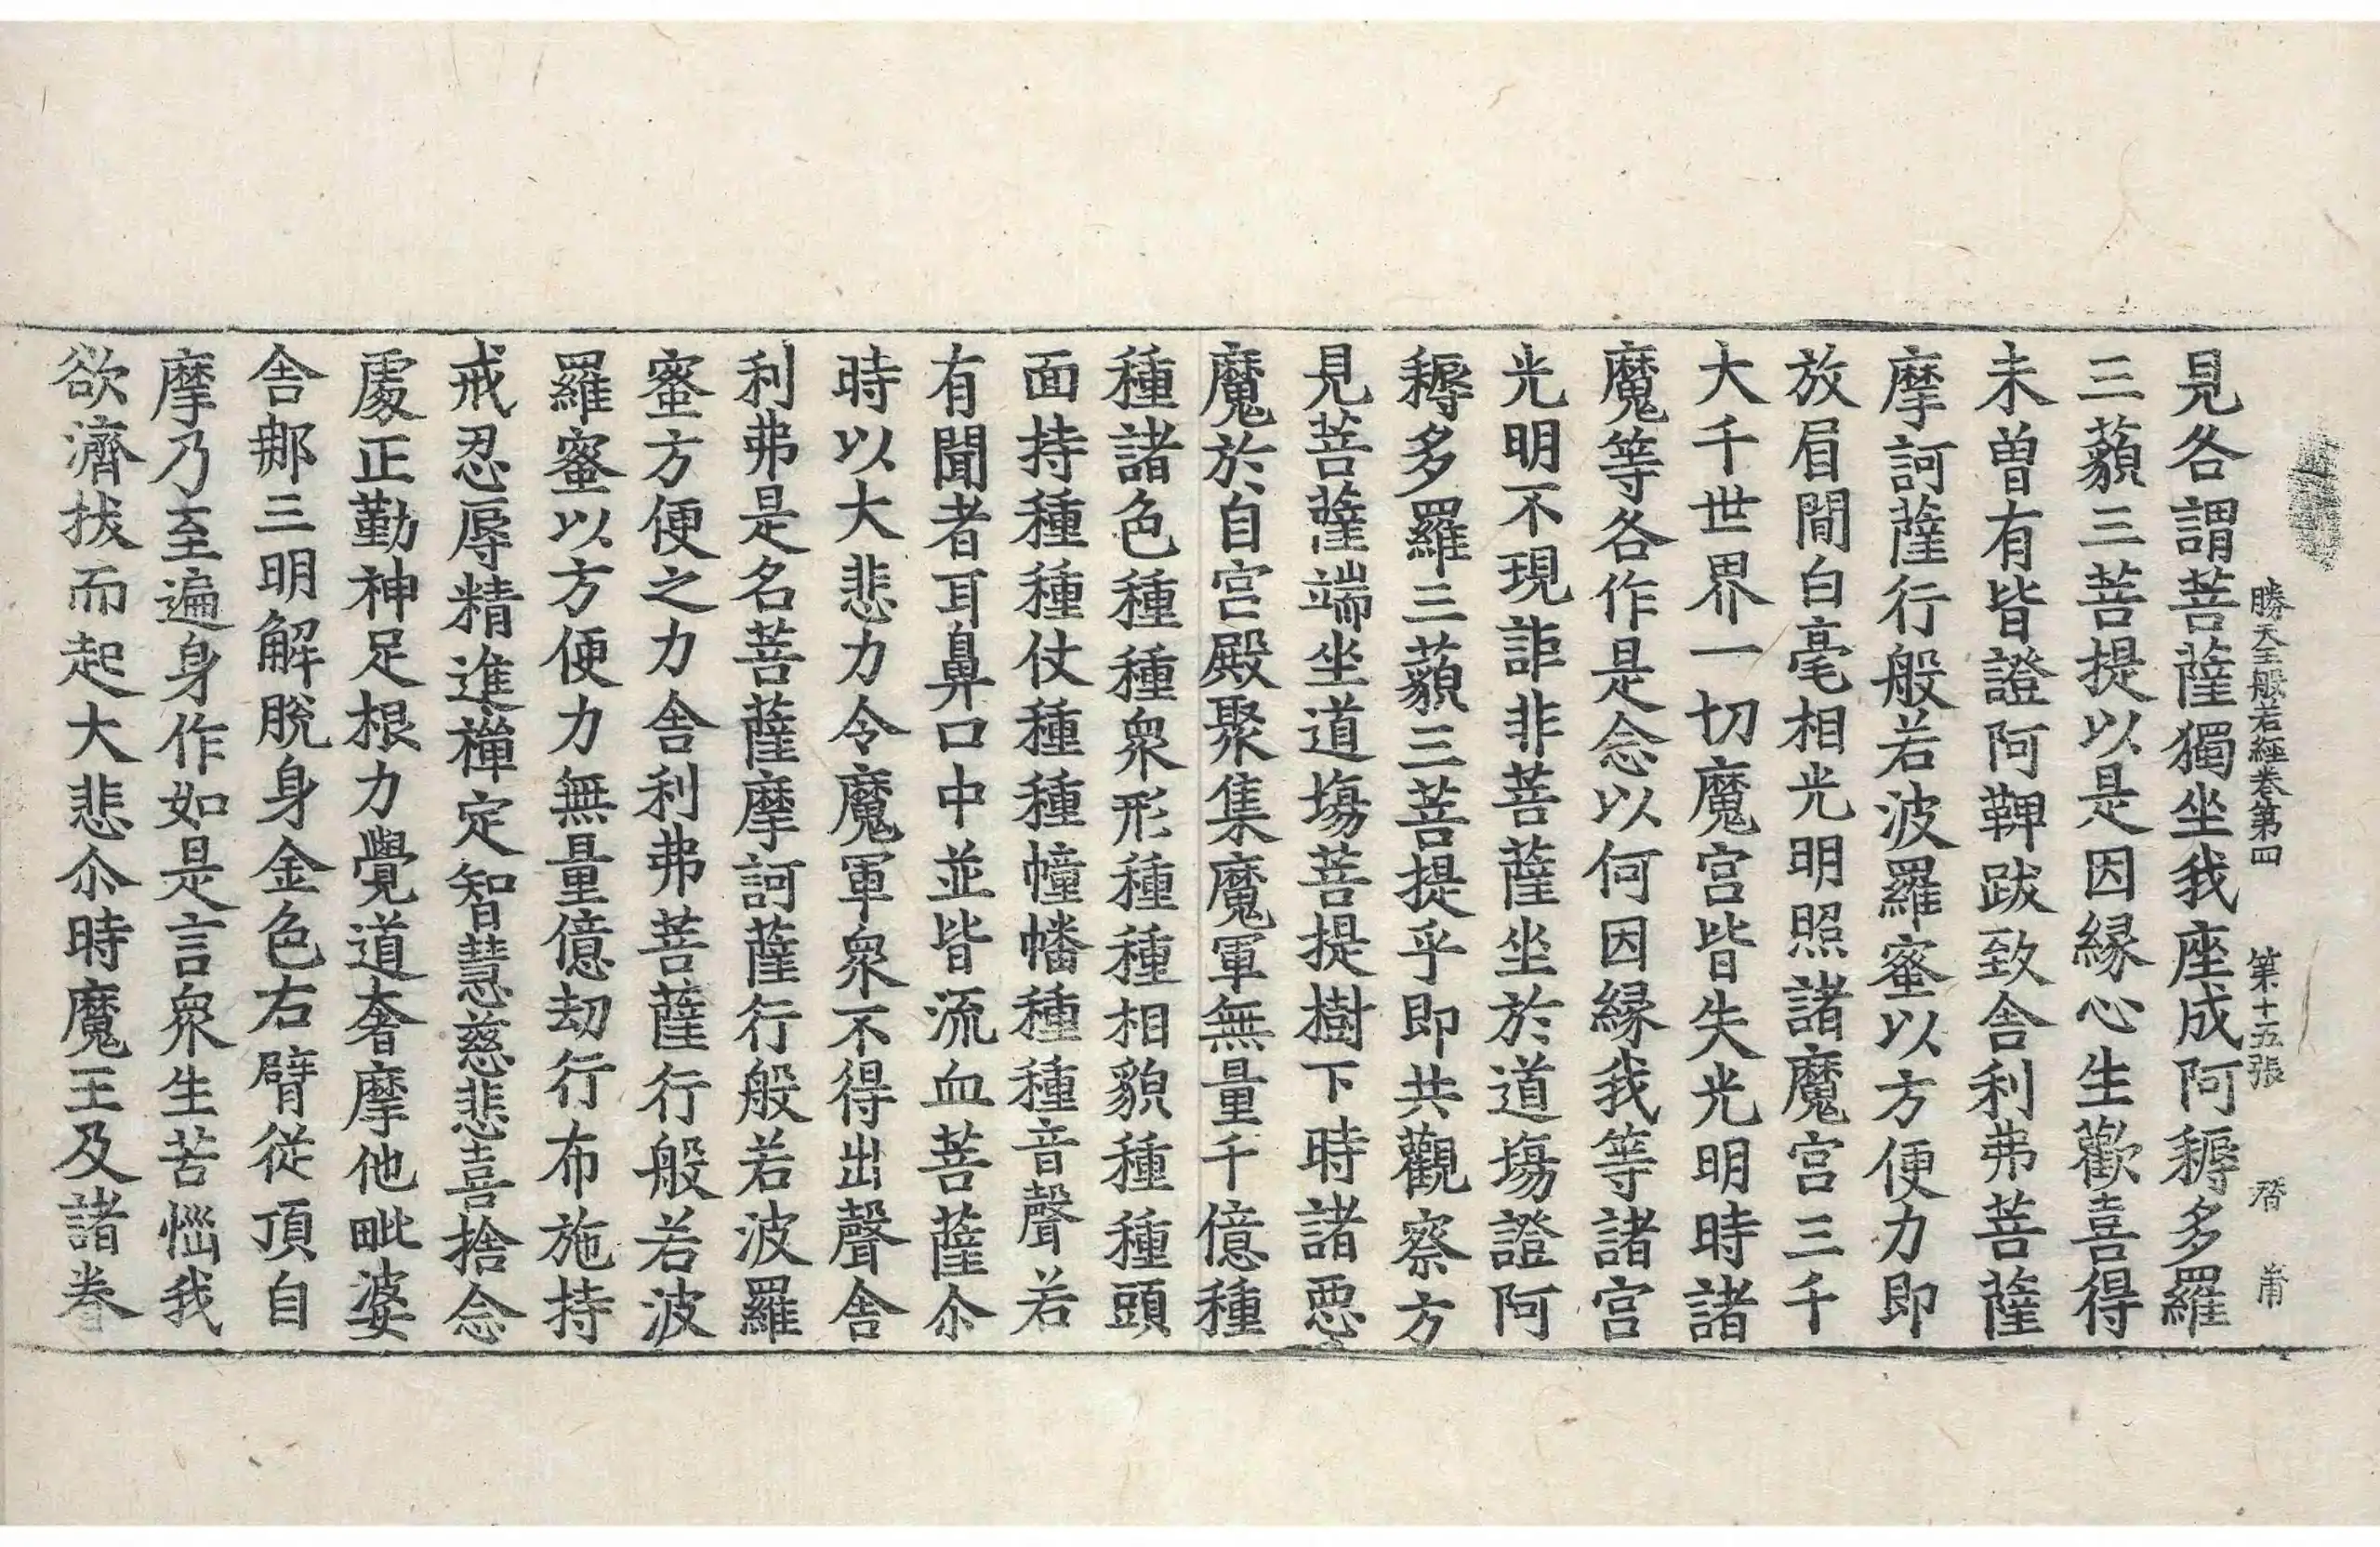 勝天王般若經卷第四 第十五張
見各謂菩薩獨坐我座成阿耨多羅
三藐三菩提以是因緣心生歡喜得
未曾有皆證阿鞞跋致舎利弗菩薩
摩訶薩行般若波羅蜜以方便力即
放眉閒白毫相光明照諸魔宫三千
大千世界一切魔宫皆失光明時諸
魔等各作是念以何因緣我等諸宫
光明不現詎非菩薩坐於道塲證阿
耨多羅三藐三菩提乎即共觀察方
見菩薩端坐道塲菩提樹下時諸惡
魔於自宫殿聚集魔軍無量千億種
種諸色種種衆形種種相貌種種頭
面持種種仗種種幢幡種種音聲若
有聞者耳鼻口中並皆流血菩薩尒
時以大悲力令魔軍衆不得出聲舎
利弗是名菩薩摩訶薩行般若波羅
蜜方便之力舎利弗菩薩行般若波
羅蜜以方便力無量億劫行布施持
戒忍辱精進禪定智慧慈悲喜捨念
處正勤神足根力覺道奢摩他毗婆
舎那三明解脫身金色右臂從頂自
摩乃至遍身作如是言衆生苦惱我
欲濟拔而起大悲尒時魔王及諸眷